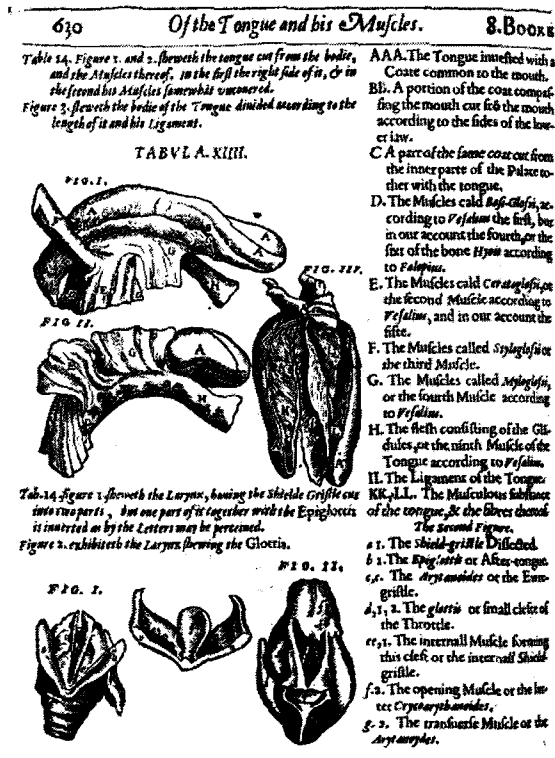 630 Of the Tongue and his Muſcles. 8. Booke
Table 14. Figure 1. and 2. ſheweth the tongue cut from the bodie,
and the Muſcles thereof, in the firſt the right ſide of it, & in
the ſecond his Muſcles ſomewhat uncouered.
Figure 3. ſheweth the bodie of the Tongue diuided according to the
length of it and his Ligament.
TABVLA. XIIII.
FIG. I.
FIG. III.
FIG II.
Tab. 14. figure 1. ſheweth the Larynx, hauing the Shielde Griſtle cut
into two parts, but one part of it together with the Epiglottis
is inuerted as by the Letters may be perceiued.
Figure 2. exhibiteth the Larynx ſhewing the Glottis.
FIG. I.
FIG. II.
AAA. The Tongue inueſted with a
Coate common to the mouth.
BB. A portion of the coat compaſ-
ſing the mouth cut frō the mouth
according to the ſides of the low-
er iaw.
C A part of the ſame coat cut from
the inner parts of the Palate to-
ther with the tongue.
D. The Muſcles cald Baſi-Gloſſi, ac-
cording to Veſalius the firſt, but
in our account the fourth, or the
ſixt of the bone Hyois according
to Falopius.
E. The Muſcles cald Ceratogloſſi, or
the ſecond Muſcle according to
Veſalius, and in our account the
fifte.
F. The Muſcles called Stylogloſſi or
the third Muſcle.
G. The Muſcles called Mylogloſſi,
or the fourth Muſcle according
to Veſalius.
H. The fleſh conſiſting of the Glā-
dules, or the ninth Muſcle of the
Tongue according to Veſalius.
II. The Ligament of the Tongue
KK, LL. The Muſculous ſubſtance
of the tongue, & the fibres thereof.
The Second Figure.
a 1. The Shield-griſtle Diſſected.
b 1. The Epiglottis or After-tongue.
c,c. The Arytanoides or the Ewre-
griſtle.
d,1, 2. The glottis or ſmall cleft of
the Throttle.
ee,1. The internall Muſcle forming
this cleft or the internall Shield
griſtle.
f.2. The opening Muſcle or the lat-
ter Crycoarythanoides.
g. 2. The tranſuerſe Muſcle or the